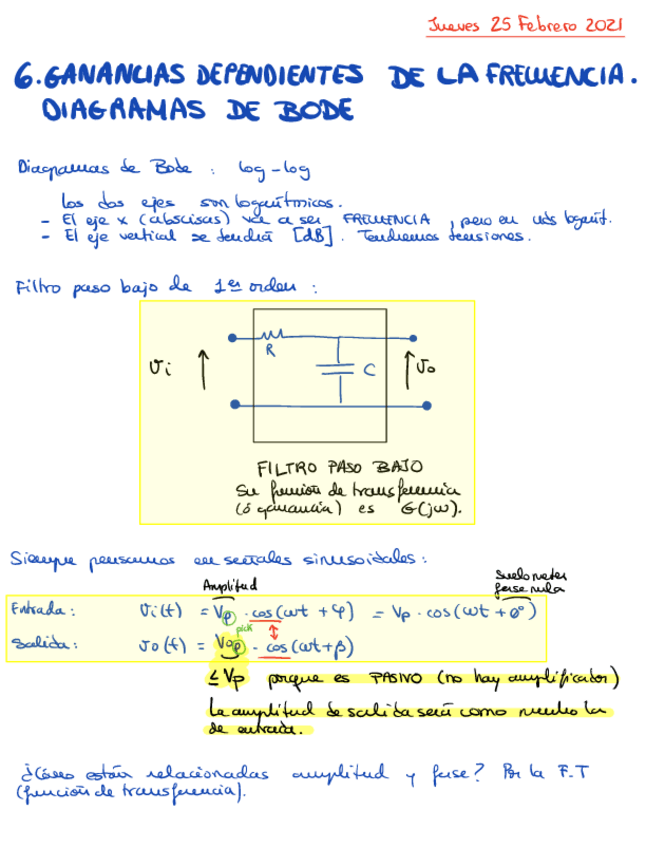 Jueves 25 Febrero 2021
6. GANANCIAS DEPENDIENTES DE LA FRECUENCIA.
DIAGRAMAS DE BODE
Diagramas de Bode : log-log
Los dos ejes son logarítmicos.
- El eje x (abscisas) va a ser FRECUENCIA, pero en uds logarít.
- El eje vertical se tendrá [dB]. Tendremos tensiones.
Filtro paso bajo de 1er orden :
R
vi
C
vo
FILTRO PASO BAJO
Su función de transferencia
(ó ganancia) es G(jω).
Siempre pensamos en señales sinusoidales:
Amplitud
Suelo meter
fase nula
Entrada: vi(t) = Vp · cos(ωt + φ) = Vp · cos(ωt + 0°)
pick
Salida: vo(t) = Vop · cos(ωt+β)
≤ Vp porque es PASIVO (no hay amplificador)
La amplitud de salida será como mucho la
de entrada.
¿Cómo están relacionadas amplitud y fase? Por la F.T
(función de transferencia).